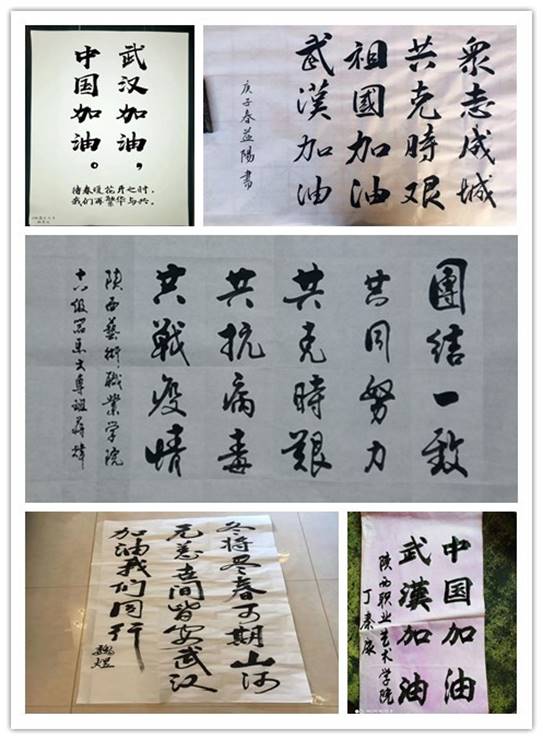 武汉加油，
中国加油。
待春暖花开之时，
我们再繁华与共。
衆志成城
共克時艰
祖國加油
武漢加油
庚子春益陽書
團结一致
共同努力
共克時艱
共抗病毒
共戰疫情
陝西藝術職業学院
十八级
冬将尽春可期山河
无恙世间皆安武汉
加油我们同行
魏煜
中国加油
武漢加油
陕西职业艺术学院
丁秦